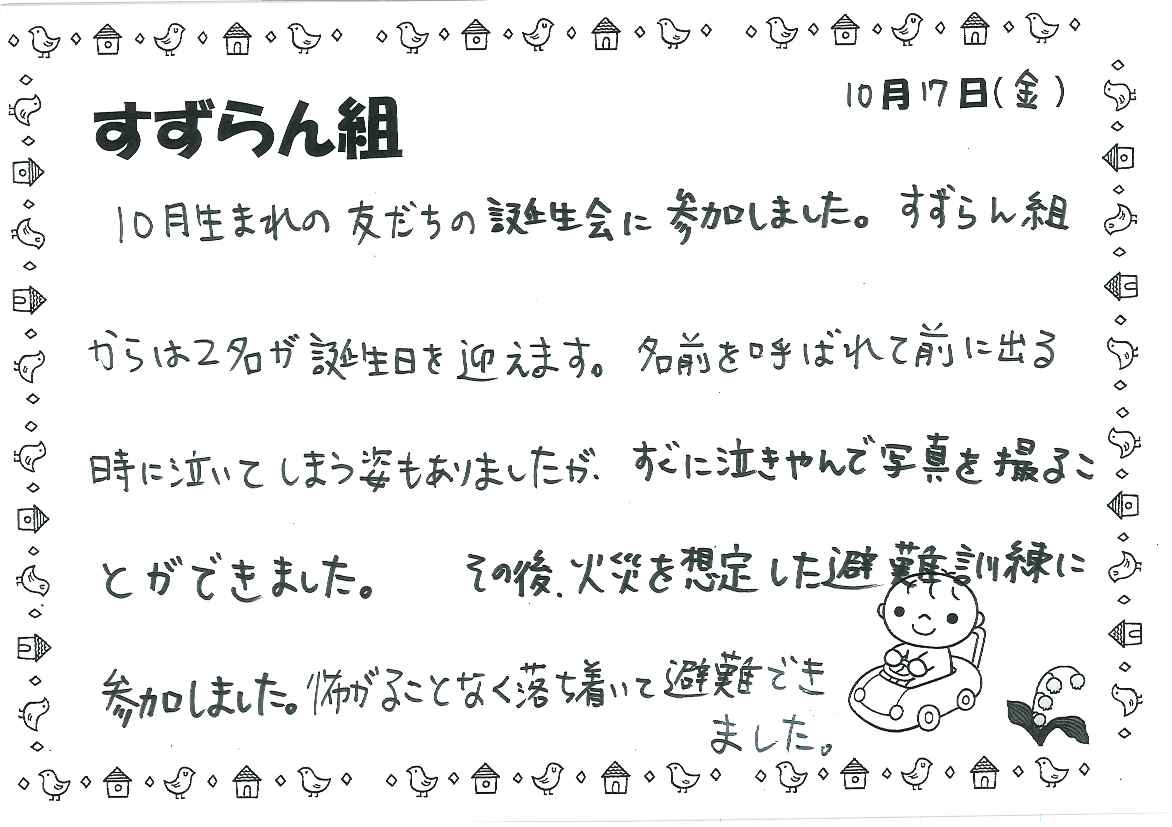 10月17日(金)
すずらん組
10月生まれの友だちの誕生会に参加しました。すずらん組
からは2名が誕生日を迎えます。名前を呼ばれて前に出る
時に泣いてしまう姿もありましたが、すぐに泣きやんで写真を撮るこ
とができました。 その後、火災を想定した避難訓練に
参加しました。怖がることなく落ち着いて避難でき
ました。